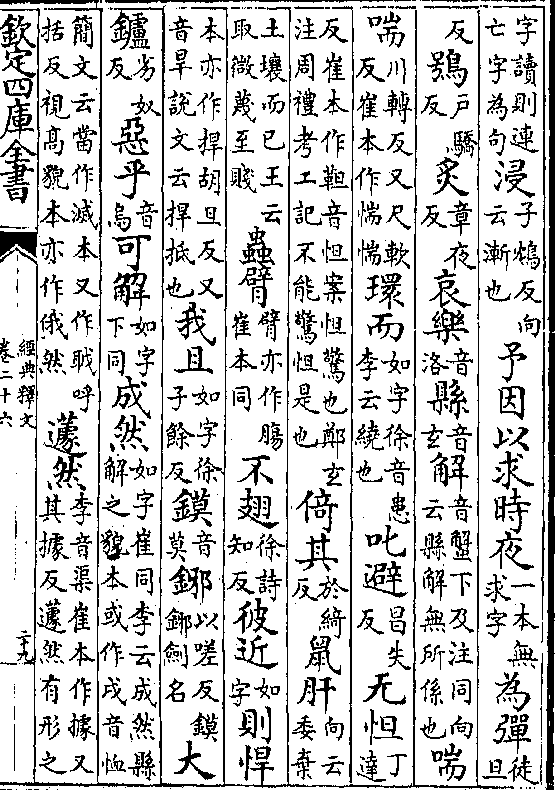 字讀則連亡字為句浸子鴆反向云漸也予因以求時夜一本無求字為彈徒旦
反鴞戶驕反炙章夜反哀樂音洛縣音玄解音蟹下及注同向云縣解無所係也喘
喘川轉反又尺軟反崔本作惴惴環而如字徐音患李云繞也叱避昌失反无怛丁達
反崔本作靼音怛案怛驚也鄭玄注周禮考工記不能驚怛是也倚其於綺反鼠肝向云委棄
土壤而已王云取微蔑至賤蟲臂臂亦作腸崔本同不翅徐詩知反彼近如字則悍
本亦作捍胡旦反又音旱說文云捍抵也我且如字徐子餘反鏌音莫鋣以嗟反鏌鋣劍名大
鑪劣奴反惡乎音烏可解如字下同成然如字崔同李云成然縣解之貌本或作戌音恤
簡文云當作滅本又作眓呼括反視高貌本亦作俄然蘧然李音渠崔本作據又其據反蘧然有形之
欽定四庫全書
經典釋文
卷二十六
二十九